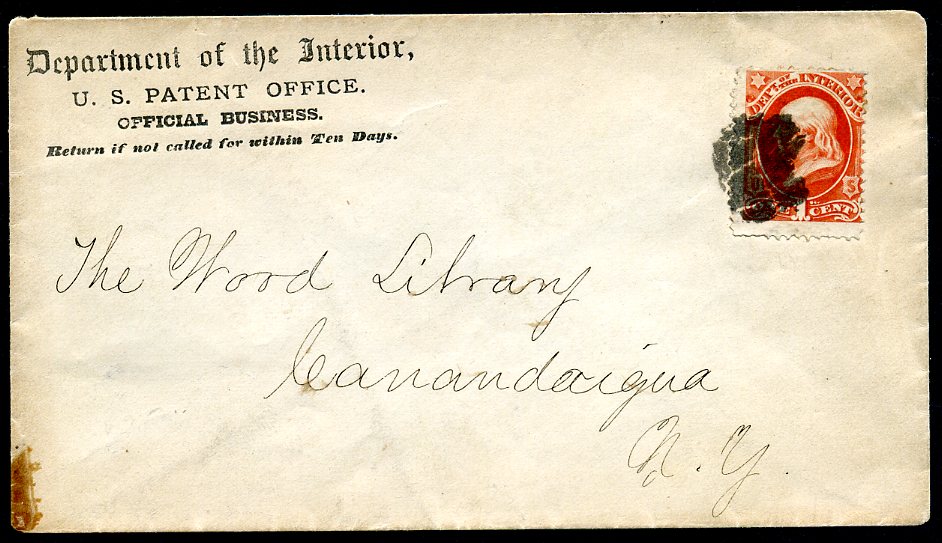 Department of the Interior,
U. S. PATENT OFFICE.
OFFICIAL BUSINESS.
Return if not called for within Ten Days.
DEP'T OF THE INTERIOR
U S
ONE 1 CENT
The Wood Library
Canandaigua
N. Y.